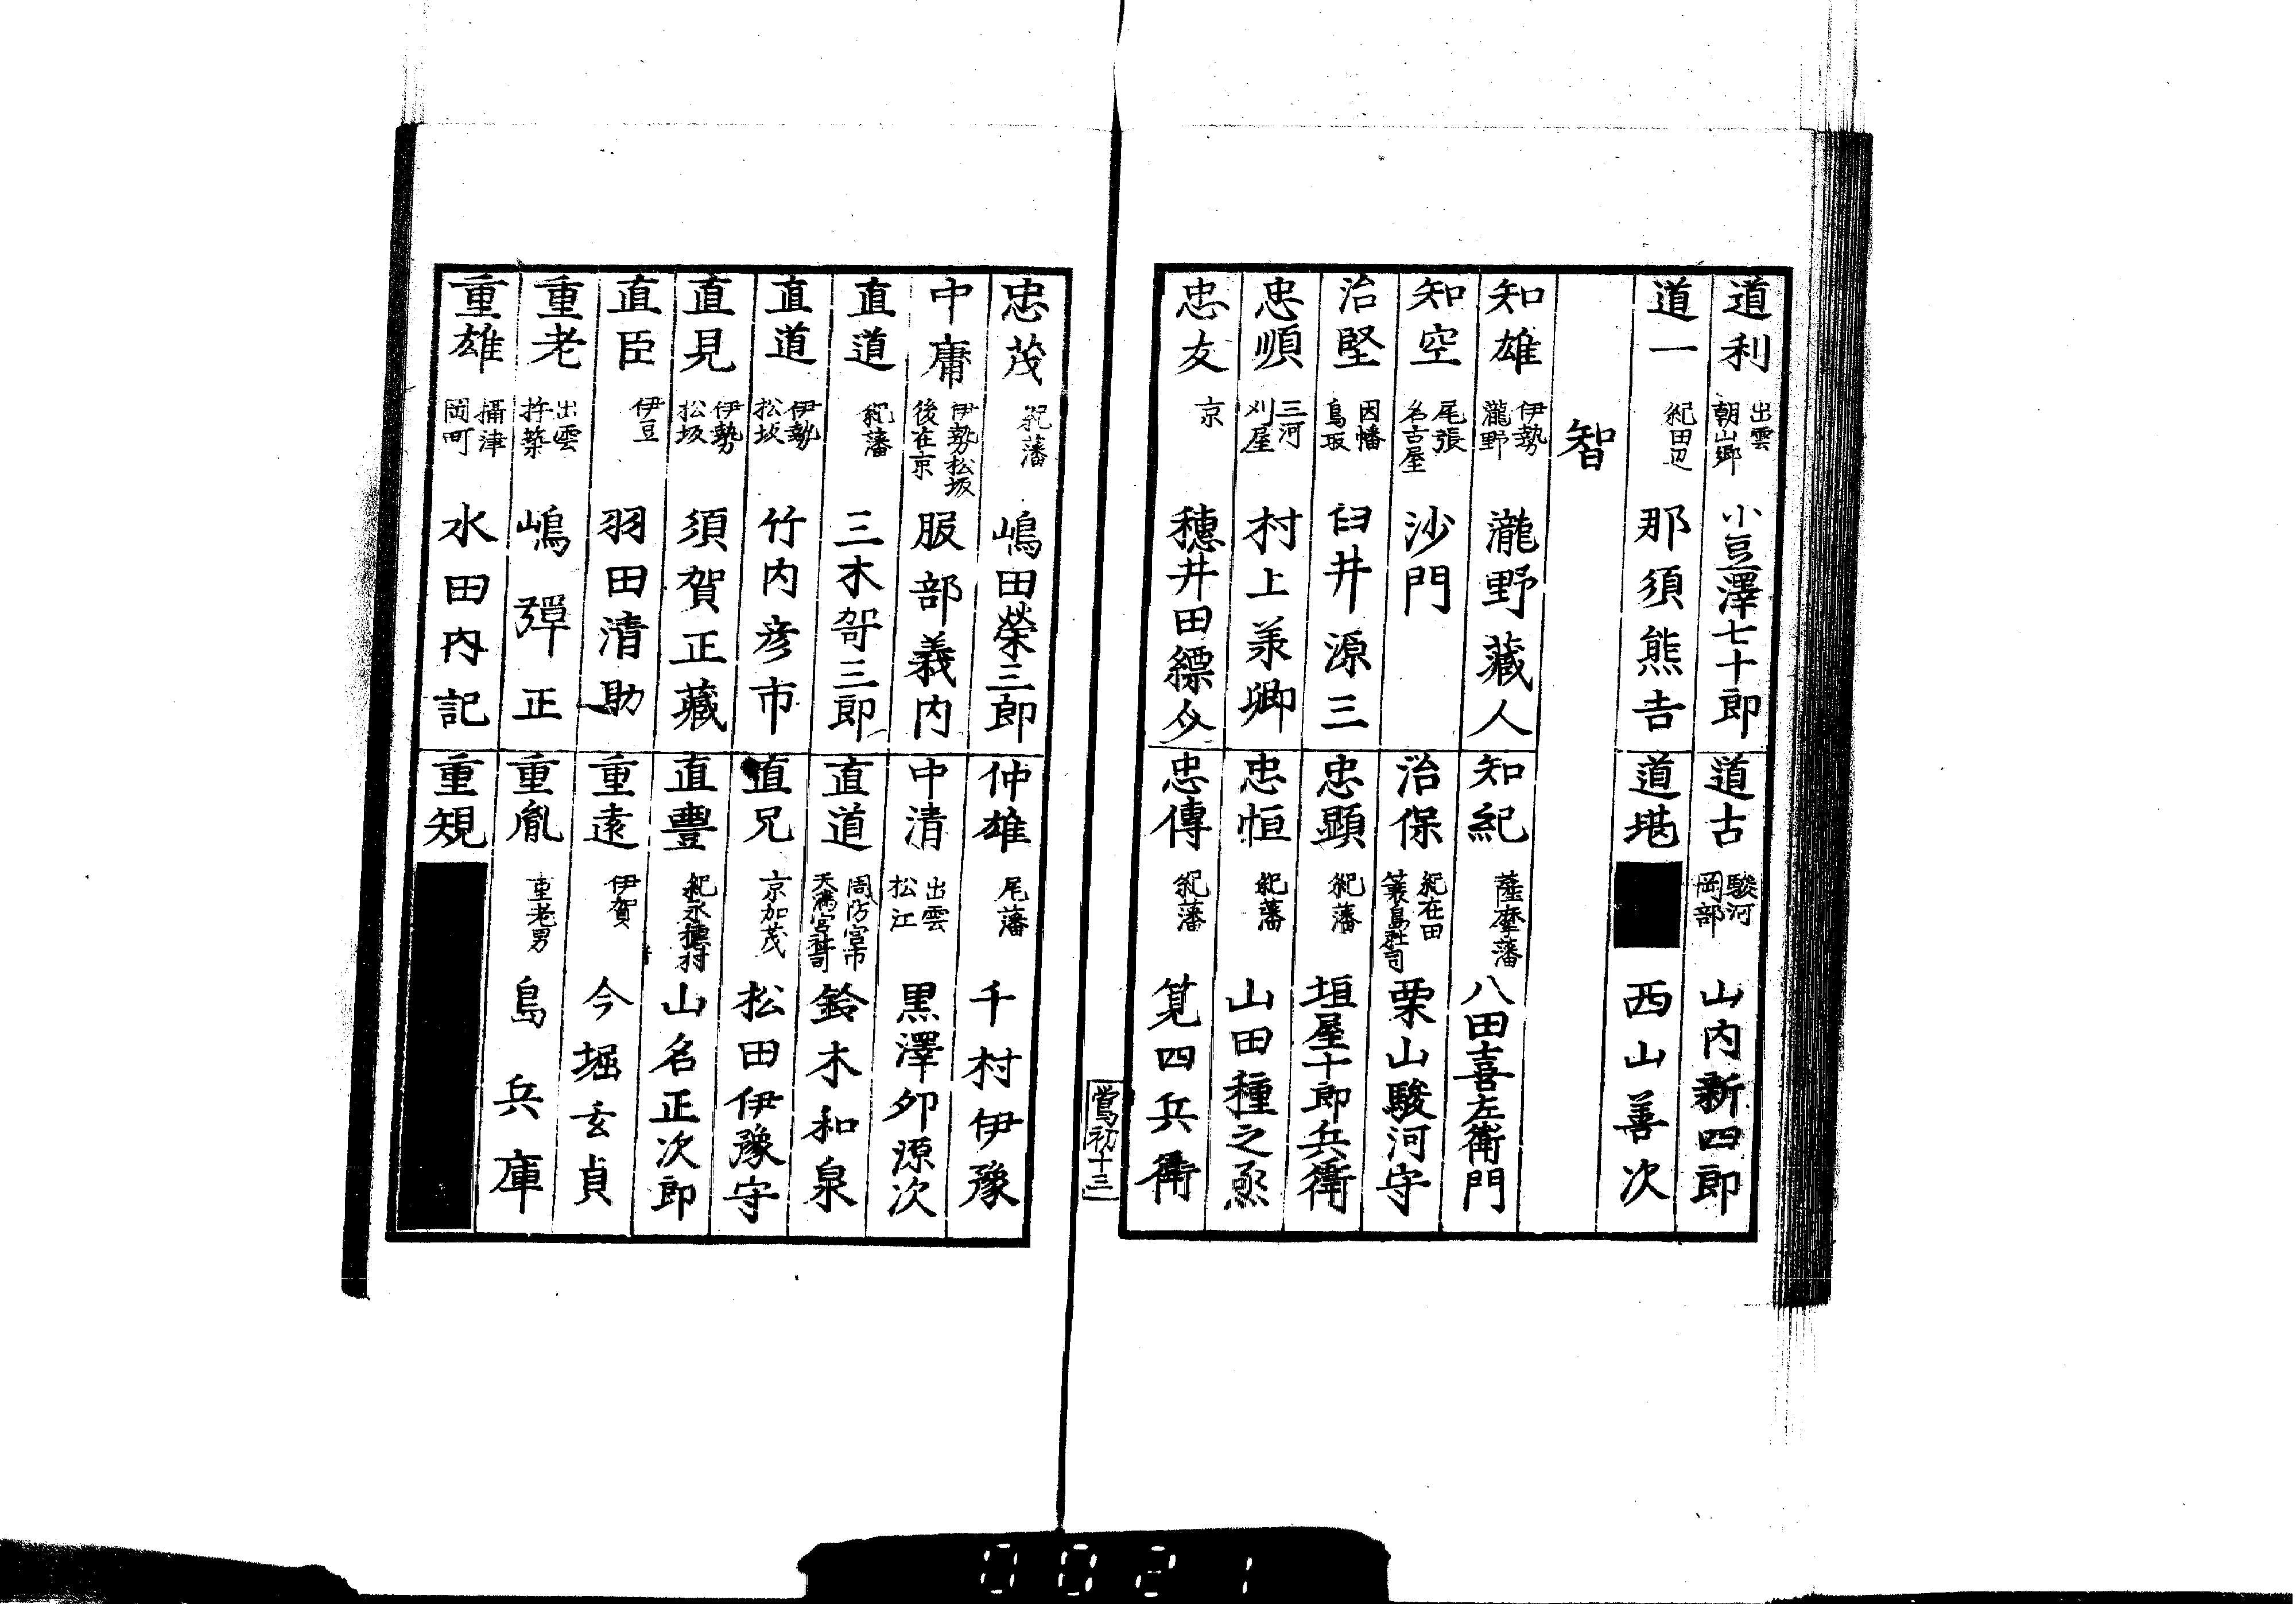 道利 出雲朝山郷 小豆澤七十郎
道古 駿河岡部 山内新四郎
道一 紀田辺 那須熊吉
道堪 西山善次
智
知雄 伊勢瀧野 瀧野藏人
知紀 薩摩藩 八田喜左衛門
知空 尾張名古屋 沙門
治保 紀在田簑島社司 栗山駿河守
治堅 因幡鳥取 臼井源三
忠顕 紀藩 垣屋十郎兵衛
忠順 三河刈屋 村上承卿
忠恒 紀藩 山田種之丞
忠友 京 穂井田縹助
忠傳 紀藩 筧四兵衛
鴬初十三
忠茂 紀藩 嶋田榮三郎
仲雄 尾藩 千村伊豫
中庸 伊勢松坂後在京 服部義内
中清 出雲松江 黒澤卯源次
直道 紀藩 三木哿三郎
直道 周防宮市天満宮社司 鈴木和泉
直道 伊勢松坂 竹内彦市
直兄 京加茂 松田伊豫守
直見 伊勢松坂 須賀正藏
直豊 紀永穂村 山名正次郎
直臣 伊豆 羽田清助
重遠 伊賀 今堀玄貞
重老 出雲杵築 嶋彈正
重胤 重老男 島兵庫
重雄 攝津岡町 水田内記
重規
0021